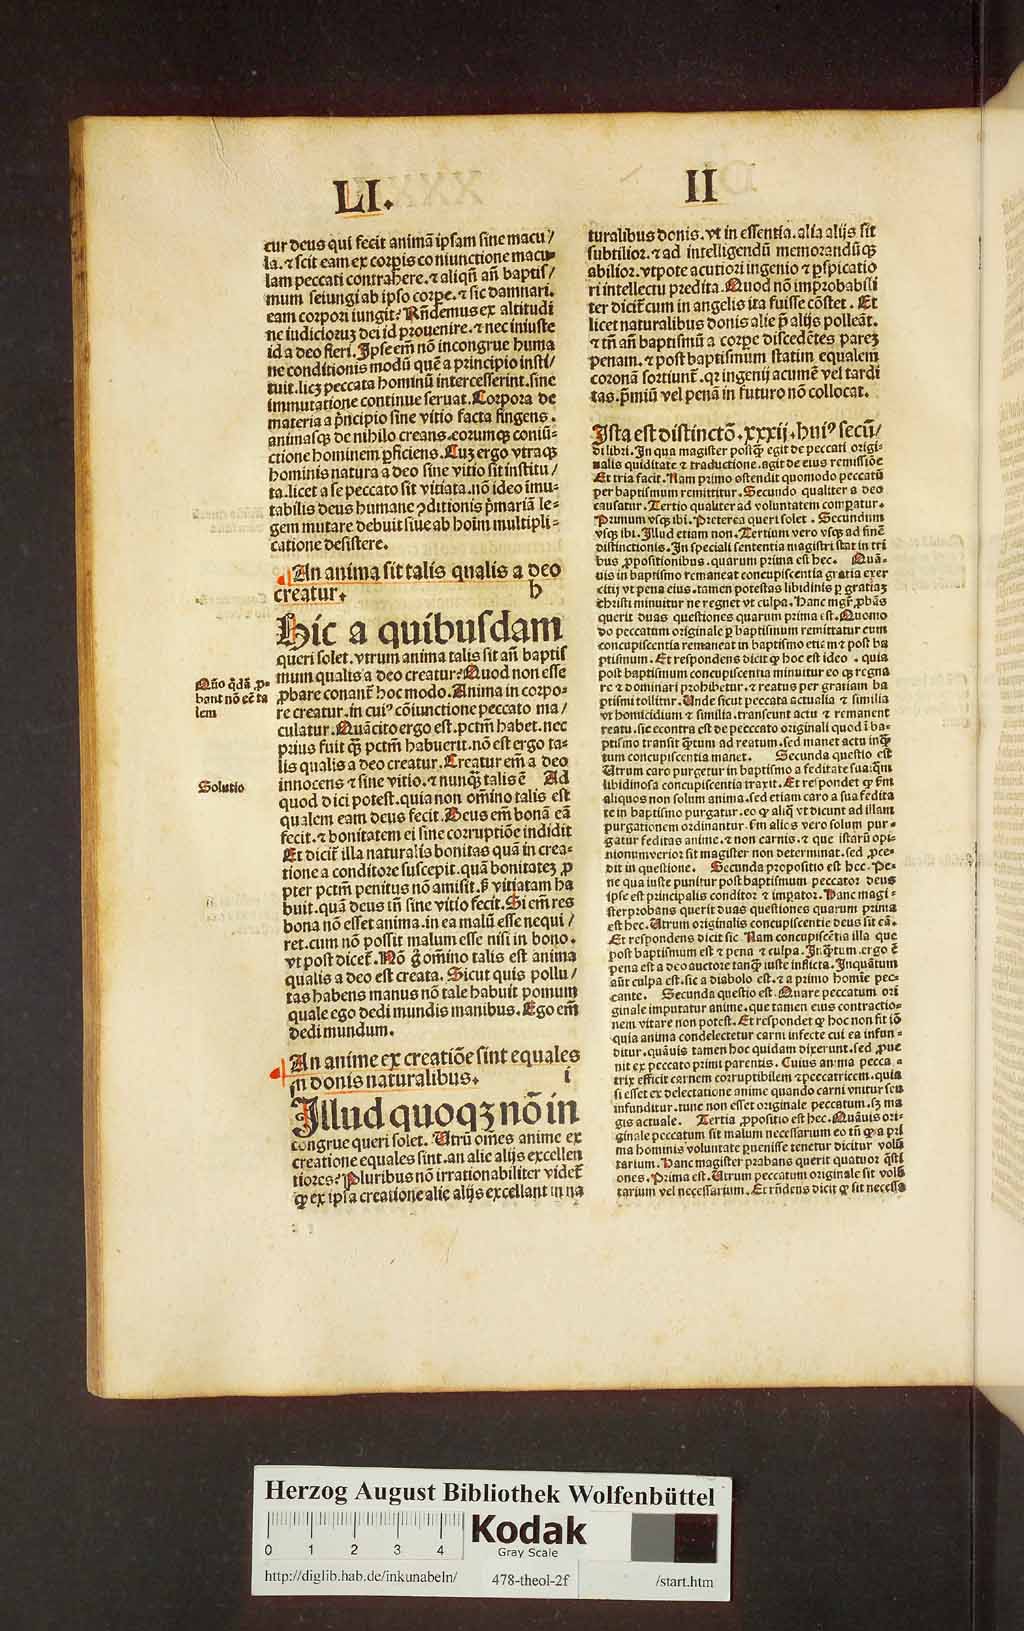 LI.
II
cur deus qui fecit animā ipsam sine macu/
la. ⁊ scit eam ex corpis coniunctione macu⸗
lam peccati contrahere. ⁊ aliqn̄ an̄ baptis/
mum seiungi ab ipso corpe. ⁊ sic damnari.
eam corpori iungit? Rn̄demus ex altitudi
ne iudicioruꝫ dei id prouenire. ⁊ nec iniuste
id a deo fieri. Ipse em̄ nō incongrue huma
ne conditionis modū quē a principio insti/
tuit. licꝫ peccata hominū intercesserint. sine
immutatione continue seruat. Corpora de
materia a pͥncipio sine vitio facta fingens.
animasqꝫ de nihilo creans. eorumqꝫ coniū⸗
ctione hominem ꝑficiens. Cuꝫ ergo vtraqꝫ
hominis natura a deo sine vitio sit institu/
ta. licet a se peccato sit vitiata. nō ideo īmu⸗
tabilis deus humane ꝯditionis pͥmariā le⸗
gem mutare debuit siue ab hoim̄ multipli⸗
catione desistere.
An anima sit talis qualis a deo
creatur. h
Hic a quibusdam
queri solet. vtrum anima talis sit an̄ baptis
mum qualis a deo creatur? Quod non esse
ꝓbare conant᷑ hoc modo. Anima in corpo⸗
re creatur. in cuiꝰ cōiunctione peccato ma/
culatur. Quācito ergo est. pctm̄ habet. nec
prius fuit qꝫ̄ pctm̄ habuerit. nō est ergo ta⸗
lis qualis a deo creatur. Creatur em̄ a deo
innocens ⁊ sine vitio. ⁊ nunqꝫ̄ talis ē Ad
quod dici potest. quia non om̄ino talis est
qualem eam deus fecit. Deus em̄ bonā eā
fecit. ⁊ bonitatem ei sine corruptiōe indidit
Et dicit᷑ illa naturalis bonitas quā in crea⸗
tione a conditore suscepit. quā bonitateꝫ ꝓ
pter pctm̄ penitus nō amisit. sꝫ vitiatam ha
buit. quā deus tn̄ sine vitio fecit. Si em̄ res
bona nō esset anima. in ea malū esse nequi/
ret. cum nō possit malum esse nisi in bono.
vt post dicet᷑. Nō g̊ om̄ino talis est anima
qualis a deo est creata. Sicut quis pollu/
tas habens manus nō tale habuit pomum
quale ego dedi mundis manibus. Ego em̄
dedi mundum.
An anime ex creatiōe sint equales
in donis naturalibus. i
Illud quoqꝫ nō in
congrue queri solet. Utrū om̄es anime ex
creatione equales sint. an alie alijs excellen
tiores? Pluribus nō irrationabiliter videt᷑
ꝙ ex ipsa creatione alie alijs excellant in na
Qn̄o qdā ꝓ⸗
bant nō eē ta
lem
Solutio
turalibus donis. vt in essentia. alia alijs sit
subtilior. ⁊ ad intelligendū memorandūqꝫ
abilior. vtpote acutiori ingenio ⁊ ꝑspicatio
ri intellectu predita. Quod nō improbabili
ter dicit᷑ cum in angelis ita fuisse cōstet. Et
licet naturalibus donis alie p̄ alijs polleāt.
⁊ tn̄ an̄ baptismū a corpe discedētes pareꝫ
penam. ⁊ post baptismum statim equalem
coronā sortiunt᷑. qꝛ ingenij acumē vel tardi
tas. p̄miū vel penā in futuro nō collocat.
Ista est distinctō. xxxij. huiꝰ secū/
di libri. In qua magister postqꝫ̄ egit de peccati origi⸗
nalis quiditate ⁊ traductione. agit de eius remissiōe
Et tria facit. Nam primo ostendit quomodo peccatū
per baptismum remittitur. Secundo qualiter a deo
causatur. Tertio qualiter ad voluntatem comparatur.
Primum vsqꝫ ibi. Preterea queri solet. Secundum
vsqꝫ ibi. Illud etiam non. Tertium vero vsqꝫ ad finē
distinctionis. In speciali sententia magistri stat in tri
bus ꝓpositionibus. quarum prima est hec. Quā⸗
uis in baptismo remaneat concupiscentia gratia exer
citij vt pena eius. tamen potestas libidinis ꝑ gratiaꝫ
christi minuitur ne regnet vt culpa. Hanc mgr̄ ꝓbās
querit duas questiones quarum prima est. Quomo
do peccatum originale ꝑ baptismum remittatur cum
concupiscentia remaneat in baptismo etiam ⁊ post ba
ptismum. Et respondens dicit ꝙ hoc est ideo. quia
post baptismum concupiscentia minuitur eo ꝙ regna
re ⁊ dominari prohibetur. ⁊ reatus per gratiam ba
ptismi tollitur. Unde sicut peccata actualia ⁊ similia
vt homicidium ⁊ similia. transeunt actu ⁊ remanent
reatu. sic econtra est de peccato originali quod ī ba⸗
ptismo transit q̄tum ad reatum. sed manet actu inqꝫ̄
tum concupiscentia manet. Secunda questio est
Utrum caro purgetur in baptismo a feditate sua. quā
libidinosa concupiscentia traxit. Et respondet ꝙ scd̄m
aliquos non solum anima. sed etiam caro a sua fedita
te in baptismo purgatur. eo ꝙ aliqui vt dicunt ad illam
purgationem ordinantur. scd̄m alios vero solum pur⸗
gatur feditas anime. ⁊ non carnis. ⁊ que istarū opi⸗
nionum verior sit magister non determinat. sed ꝓce⸗
dit in questione. Secunda propositio est hec. Pe⸗
ne qua iuste punitur post baptismum peccator deus
ipse est principalis conditor ⁊ imꝑator. Hanc magi⸗
ster probans querit duas questiones quarum prima
est hec. Utrum originalis concupiscentie deus sit cā.
Et respondens dicit sic Nam concupiscētia illa que
post baptismum est ⁊ pena ⁊ culpa. Inqꝫ̄tum. ergo ē
pena est a deo auctore tanqꝫ̄ iuste inflicta. Inquātum
aūt culpa est. sic a diabolo est. ⁊ a primo homīe pec⸗
cante. Secunda questio est. Quare peccatum ori
ginale imputatur anime. que tamen eius contractio⸗
nem vitare non potest. Et respondet ꝙ hoc non fit iō
quia anima condelectetur carni infecte cui ea infun⸗
ditur. quāuis tamen hoc quidam dixerunt. sed ꝓue
nit ex peccato primi parentis. Cuius anima pecca⸗
trix efficit carnem corruptibilem ⁊ peccatricem. quia
si esset ex delectatione anime quando carni vnitur seu
infunditur. tunc non esset originale peccatum. sꝫ ma
gis actuale. Tertia ꝓpositio est hec. Quāuis ori⸗
ginale peccatum sit malum necessarium eo tn̄ ꝙ a pri
ma hominis voluntate ꝓuenisse tenetur dicitur volū
tarium. Hanc magister prabans querit quatuor qōsti
ones. Prima est. Utrum peccatum originale sit volū
tarium vel necessarium. Et rn̄dens dicit ꝙ sit necessa
Herzog August Bibliothek Wolfenbüttel
0 1 2 3 4
Kodak
Gray Scale
http://diglib.hab.de/inkunabeln/
478-theol-2f
/start.htm